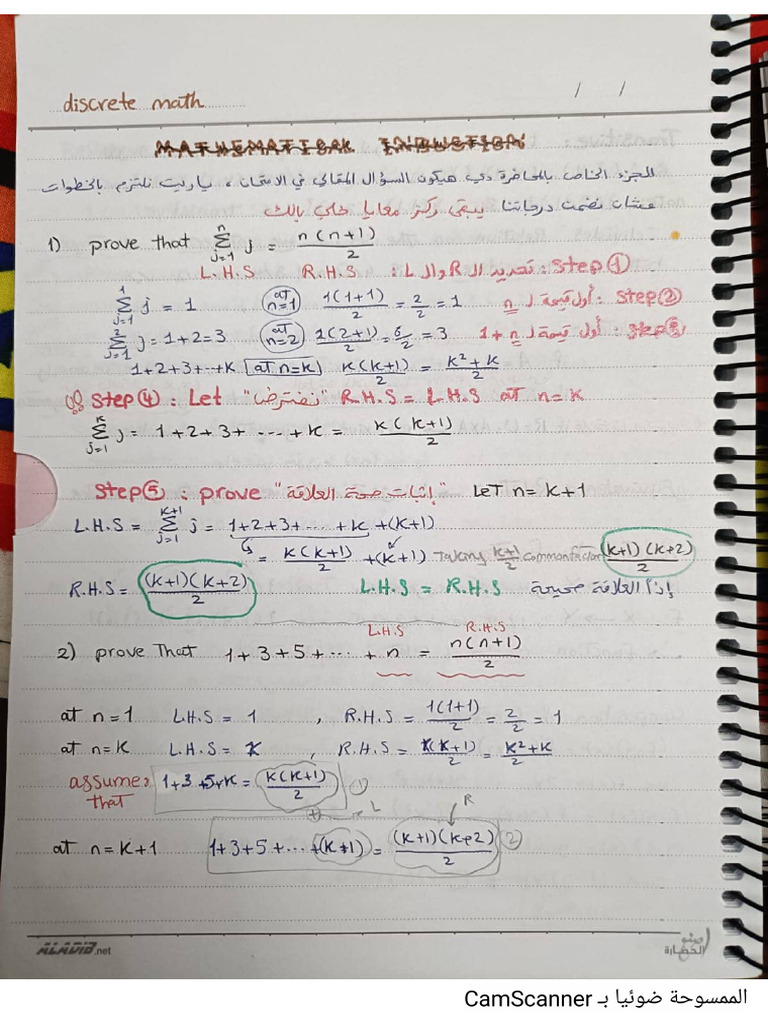 discrete math
/ /
MATHEMATICAL INDUCTION
الجزء الخاص بالمحاضرة دي هيكون السؤال المقالي في الامتحان ، ياريت نلتزم بالخطوات
عشان نضمن درجاتنا يبقى ركز معايا خلي بالك
1) prove that n∑j=1 j = n(n+1)/2
L.H.S R.H.S Step ① : تحديد الـ R والـ L
1∑j=1 j = 1 (at n=1) 1(1+1)/2 = 2/2 = 1 Step ② : أول قيمة لـ n
2∑j=1 j = 1+2=3 (at n=2) 1(2+1)/2 = 6/2 = 3 أول قيمة لـ n + 1
1+2+3+…+K [at n=K] K(K+1)/2 = K²+K/2
Step ④ : Let "نفترض" R.H.S = L.H.S at n=K
K∑j=1 j = 1+2+3+ … +K = K(K+1)/2
Step ⑤ : prove "إثبات صحة العلاقة" LET n=K+1
L.H.S = K+1∑j=1 j = 1+2+3+ … +K +(K+1)
= K(K+1)/2 +(K+1) Taking K+1/2 common factor (K+1)(K+2)/2
R.H.S = (K+1)(K+2)/2 L.H.S = R.H.S إذاً العلاقة صحيحة
L.H.S R.H.S
2) prove That 1+3+5+ … + n = n(n+1)/2
at n=1 L.H.S = 1 , R.H.S = 1(1+1)/2 = 2/2 = 1
at n=K L.H.S = K , R.H.S = K(K+1)/2 = K²+K/2
assume that 1+3+5+K = K(K+1)/2 ①
+ L R
at n=K+1 1+3+5+ … +(K+1) = (K+1)(K+2)/2 ②
ALADIB.net
صنع الحضارة
الممسوحة ضوئيا بـ CamScanner